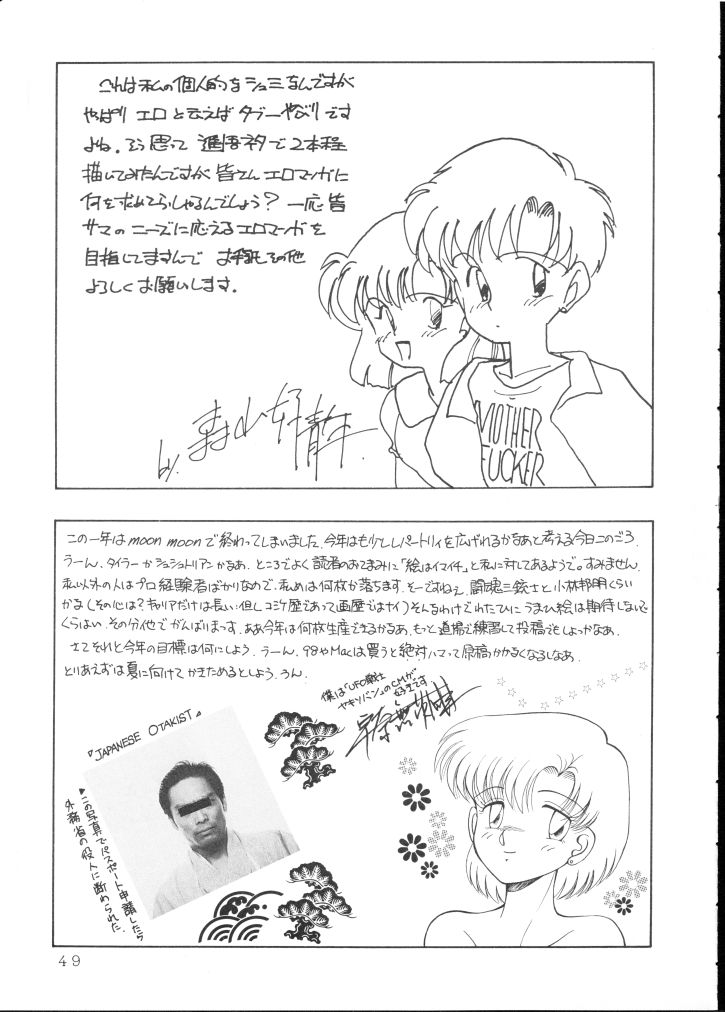 これは私の個人的なシュミなんですが
やっぱり エロ と云えば タブーやぶり です
よね。そう思って 近親ネタで 2本程
描いてみたんですが 皆さん エロマンガに
何を求めてらっしゃるんでしょう? 一応 皆
サマの ニーズに応える エロマンガを
目指してますんで お手紙その他
よろしく お願いします。
by.
MOTHER
FUCKER
この一年は moon moon で終わってしまいました。今年はも少ししレパートリィを広げれるかなあと考える今日このごろ。
うーん、タイラーかシュシュトリアンかなあ。ところでよく読者のお便りに「絵はイマイチ」と私に対してあるようで。すみません。
私以外の人はプロ経験者ばかりなので、私めは何枚か落ちます。そーですねえ、闘魂三銃士と小林邦明くらい
かな(その心は?キャリアだけは長い。但しコミケ歴であって画歴ではナイ)そんなわけでわたしに うまい絵は期待しないで
くらはい。その分他でがんばりまっす。ああ今年は何枚生産できるかなあ。もっと道場で練習して投稿でもしよっかなあ。
さてそれと今年の目標は何にしよう。うーん。98やMacは買うと絶対ハマって原稿かかなくなるしなあ。
とりあえずは夏に向けて かきためるとしよう。うん。
僕は「UFO戦士
ヤキソバン」のCMが
好きです
『JAPANESE OTAKIST』
▶この写真でパスポート申請したら
外務省の役人に断わられた。
49